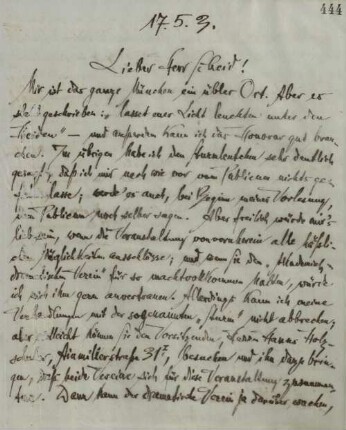 444
17. 5. 3.
Lieber Herr Scheid!
Mir ist das ganze München ein übler Ort. Aber es
steht geschrieben „lasset euer Licht leuchten unter den
Heiden" – und außerdem kann ich das Honorar gut brau-
chen. Im übrigen habe ich den Anwesenden sehr deutlich
gesagt, daß ich mir nach wie vor vom Publicum nichts ge-
fallen lasse; werde es auch, bei Beginn meiner Vorlesung,
dem Publicum noch selber sagen. Aber freilich würde mir's
lieb sein, wenn die Veranstaltung von vornherein alle häßli-
chen Möglichkeiten ausschlösse; und wenn Sie den „Akademisch-
dramatischen Verein" für so machtvollkommen halten, würde
ich mich ihm gern anvertrauen. Allerdings kann ich meine
Verhandlungen mit der sogenannten nicht abbrechen;
aber vielleicht können Sie den Vorsitzenden, Herrn Hanns Holz-
schuher, Ainmillerstraße 31, besuchen und ihn dazu brin-
gen, daß beide Vereine sich für diese Veranstaltung zusammen-
tun. Dann kann der dramatische Verein ja darüber wachen,